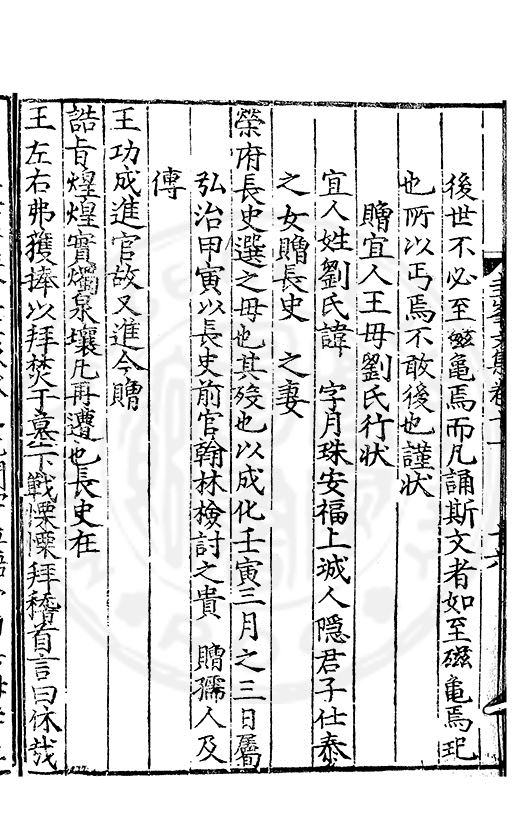 後世不必至磁龜焉而凡誦斯文者如至磁龜焉玘
也所以丐焉不敢後也謹狀
贈宜人王母劉氏行狀
宜人姓劉氏諱 字月珠安福上城人隱君子仕泰
之女贈長史 之妻
榮府長史選之母也其歿也以成化壬寅三月之三日屬
弘治甲寅以長史前官翰林檢討之貴 贈孺人及
傳
王功成進官故又進今贈
誥旨煌煌實爥泉壤凡再遭也長史在
王左右弗獲捧以拜焚于墓下戰慄慄拜稽首言曰休哉